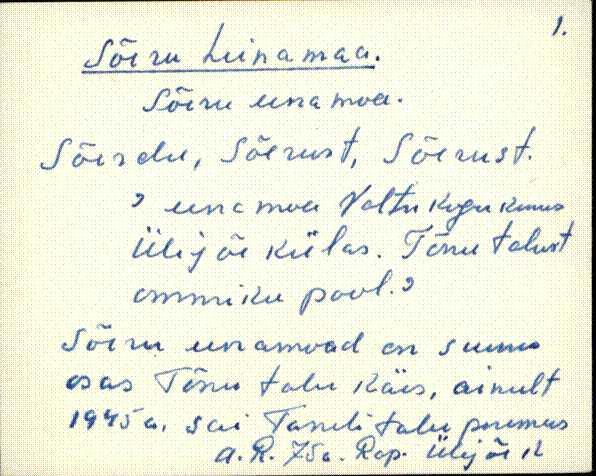 1.
Sõiru heinamaa.
Sõiru einamoa.
Sõirdu, Sõirust, Sõirust.
' einamoa Valtu kogukonnas
Ülejõe külas. Tõnu talust
ommiku pool.'
Sõiru einamoad on suures
osas Tõnu talu käis, ainult
1945 a. sai Taneli talu peremees
A. R. 75 a. Rap. Ülejõe k